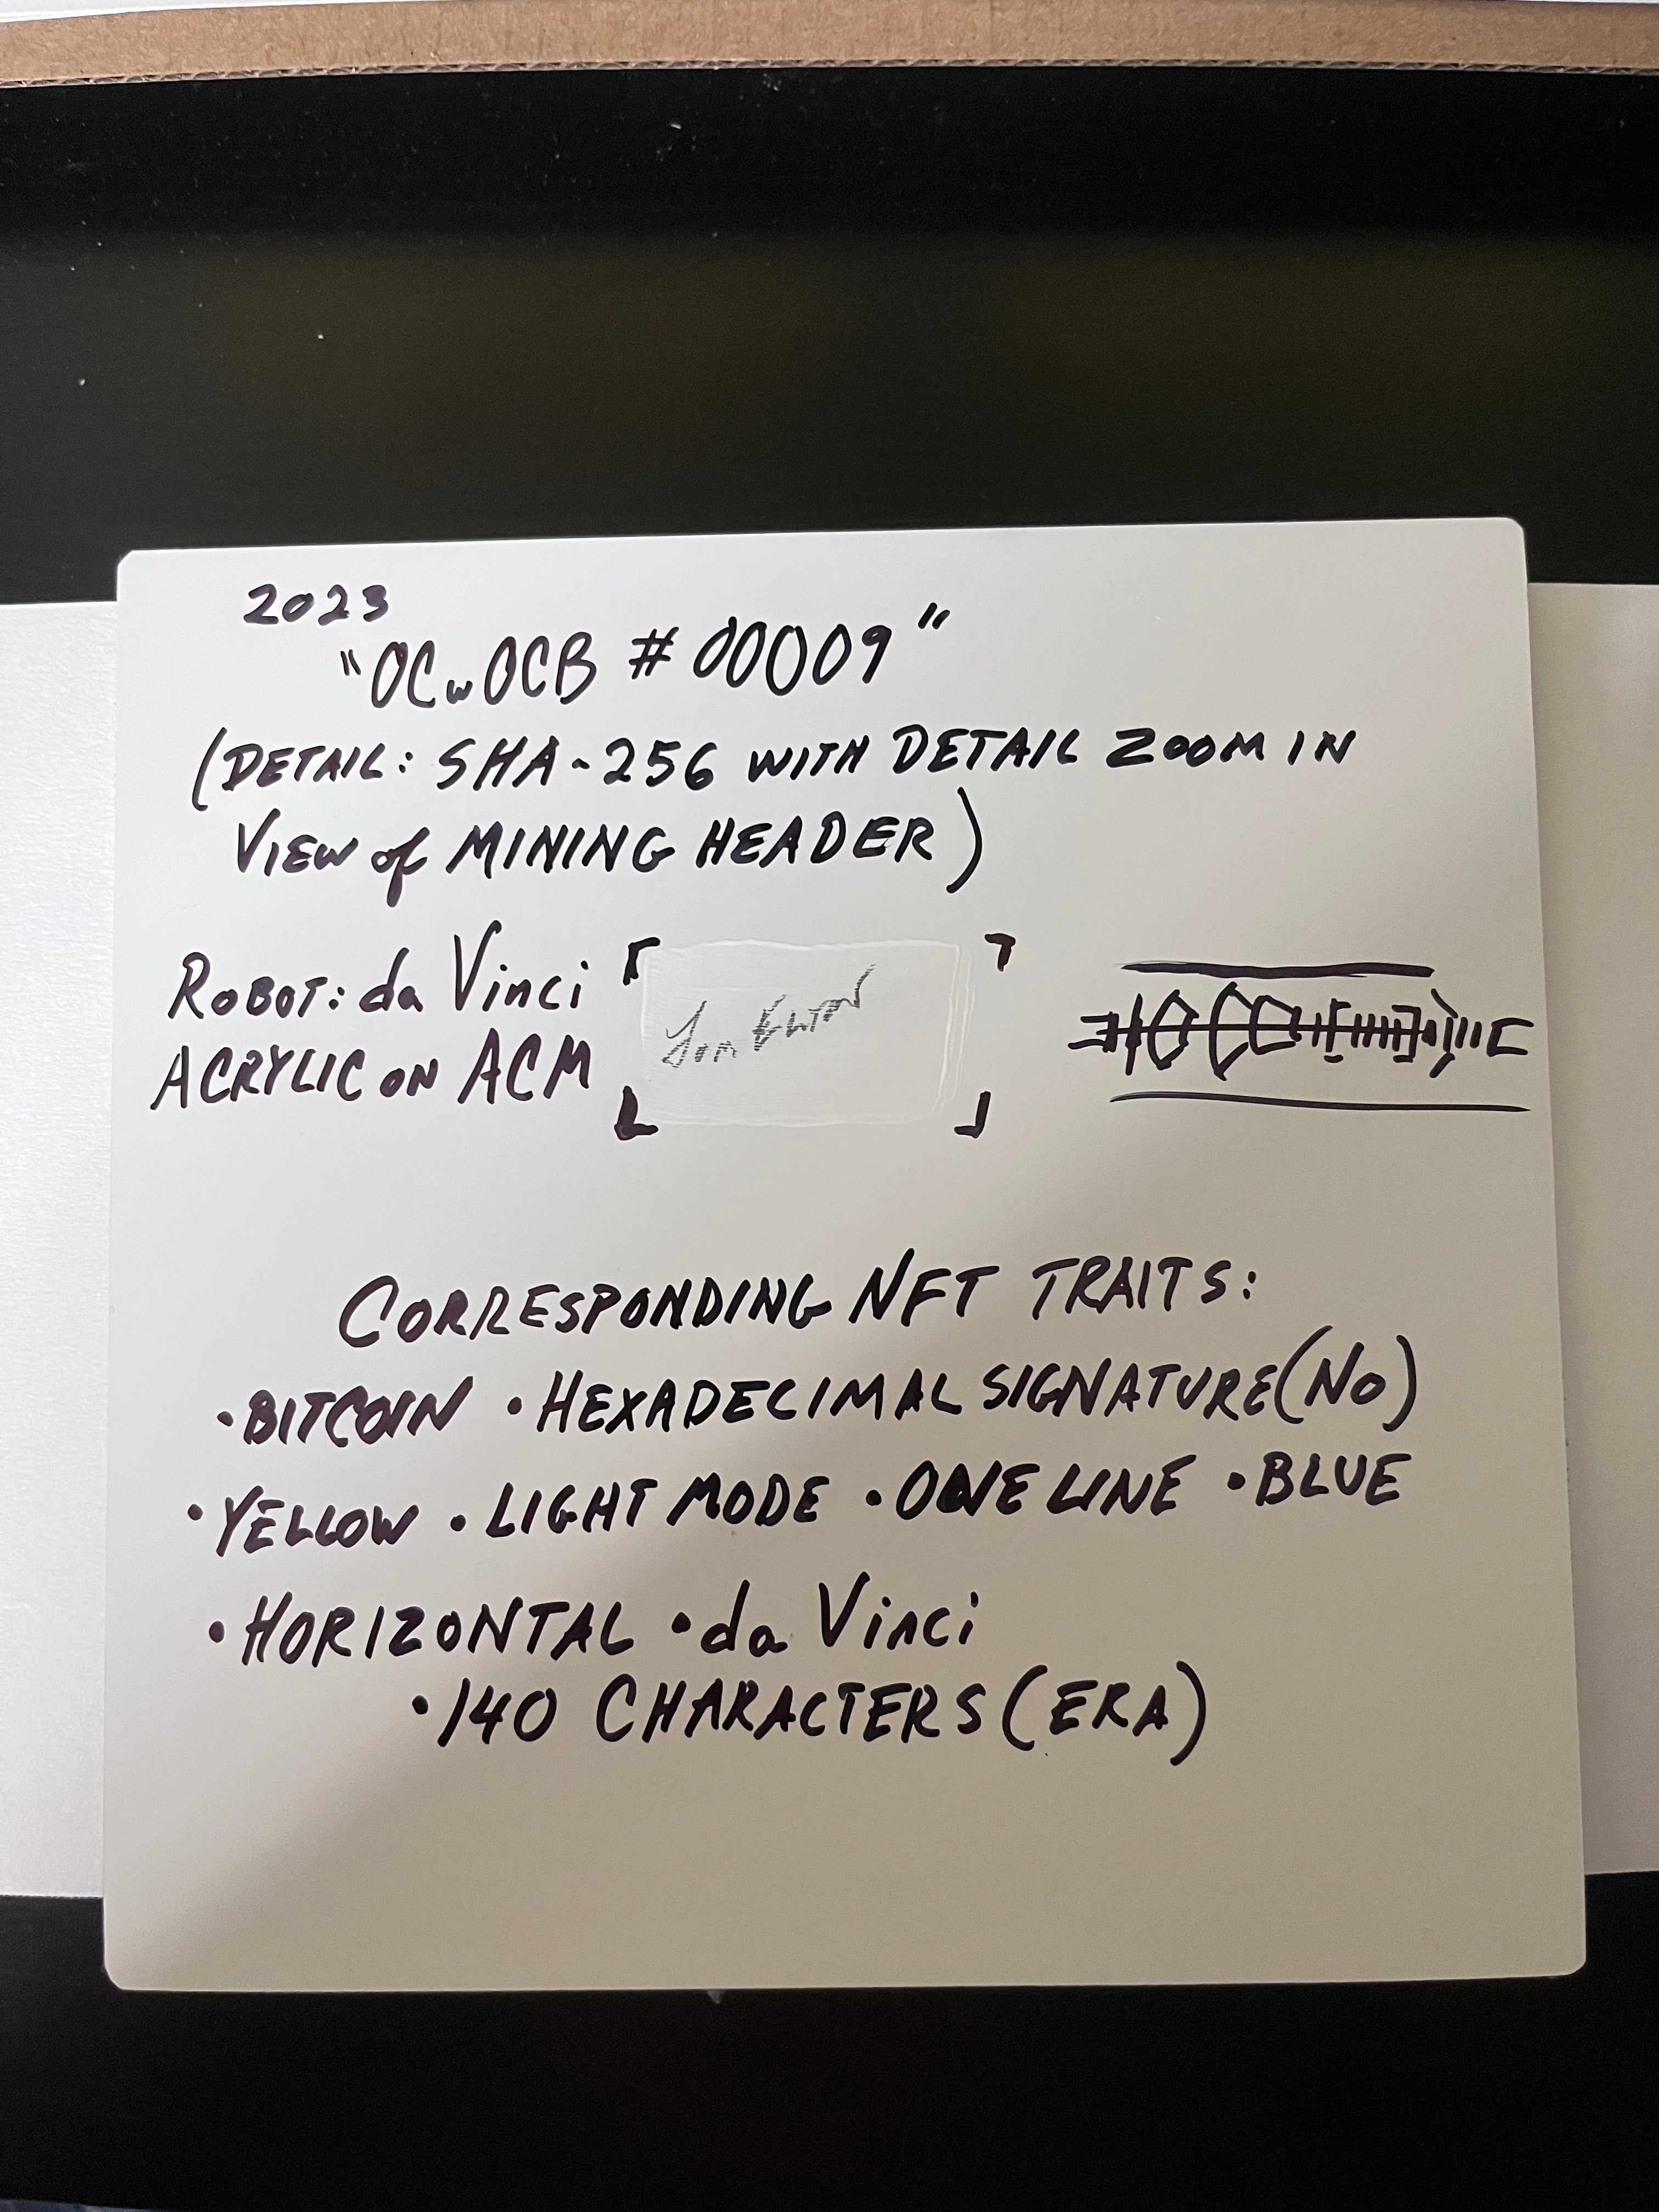 2023
"OCwOCB #00009"
(DETAIL: SHA-256 WITH DETAIL ZOOM IN
VIEW of MINING HEADER)
ROBOT: da Vinci
ACRYLIC ON ACM
CORRESPONDING NFT TRAITS:
•BITCOIN •HEXADECIMAL SIGNATURE(NO)
•YELLOW •LIGHT MODE •ONE LINE •BLUE
•HORIZONTAL •da Vinci
•140 CHARACTERS (ERA)